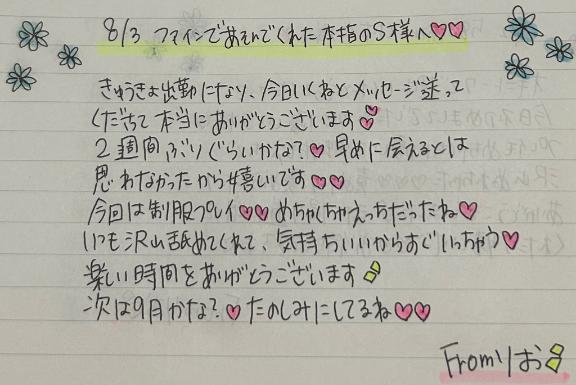 8/3 ファインであそんでくれた本指のS様へ♡♡
きゅうきょ出勤になり、今日いくねとメッセージ送って
くださって本当にありがとうございます♡
2週間ぶりぐらいかな?♡早めに会えるとは
思わなかったから嬉しいです♡♡
今回は制服プレイ♡♡めちゃくちゃえっちだったね♡
いつも沢山舐めてくれて、気持ちいいからすぐいっちゃう♡
楽しい時間をありがとうございます
次は9月かな?♡たのしみにしてるね♡♡
Fromりお